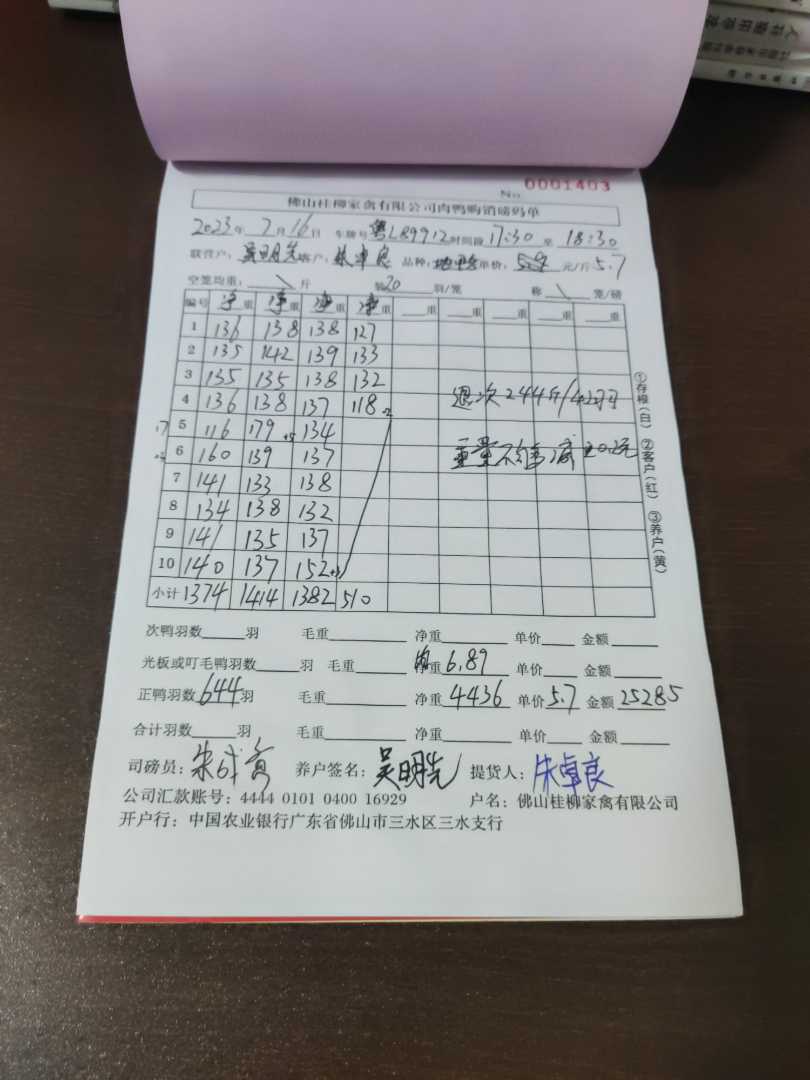 No. 0001403
佛山桂柳家禽有限公司肉鸭购销磅码单
2023年 7月 16日 车牌号 粤L89912 时间段 17:30 至 18:30
联营户: 吴明先 客户: 朱卓良 品种: 单价: 元/斤 5.7
空笼均重: \ 斤 装 20 羽/笼 称 \ 笼/磅
编号 净重 净重 净重 净重 重 重 重 重 重
1 136 138 138 127
2 135 142 139 133
3 135 135 138 132
4 136 138 137 118 -2
退次244斤/42羽
17 5 116 179 +5 134
6 160 139 137
重量不均 减 0.2元
7 141 133 138
8 134 138 132
9 141 135 137
10 140 137 152 +3
小计 1374 1414 1382 510
①存根(白) ②客户(红) ③养户(黄)
次鸭羽数 羽 毛重 净重 单价 金额
光板或叮毛鸭羽数 羽 毛重 净重 6.89 单价 金额
正鸭羽数 644 羽 毛重 净重 4436 单价 5.7 金额 25285
合计羽数 羽 毛重 净重 单价 金额
司磅员: 养户签名: 吴明先 提货人: 朱卓良
公司汇款账号: 4444 0101 0400 16929 户名: 佛山桂柳家禽有限公司
开户行: 中国农业银行广东省佛山市三水区三水支行